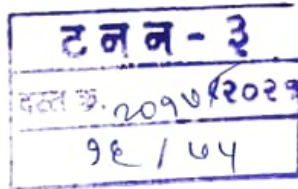 ट न न - ३
दस्त क्र. २०१७/२०२१
१६ / ७५